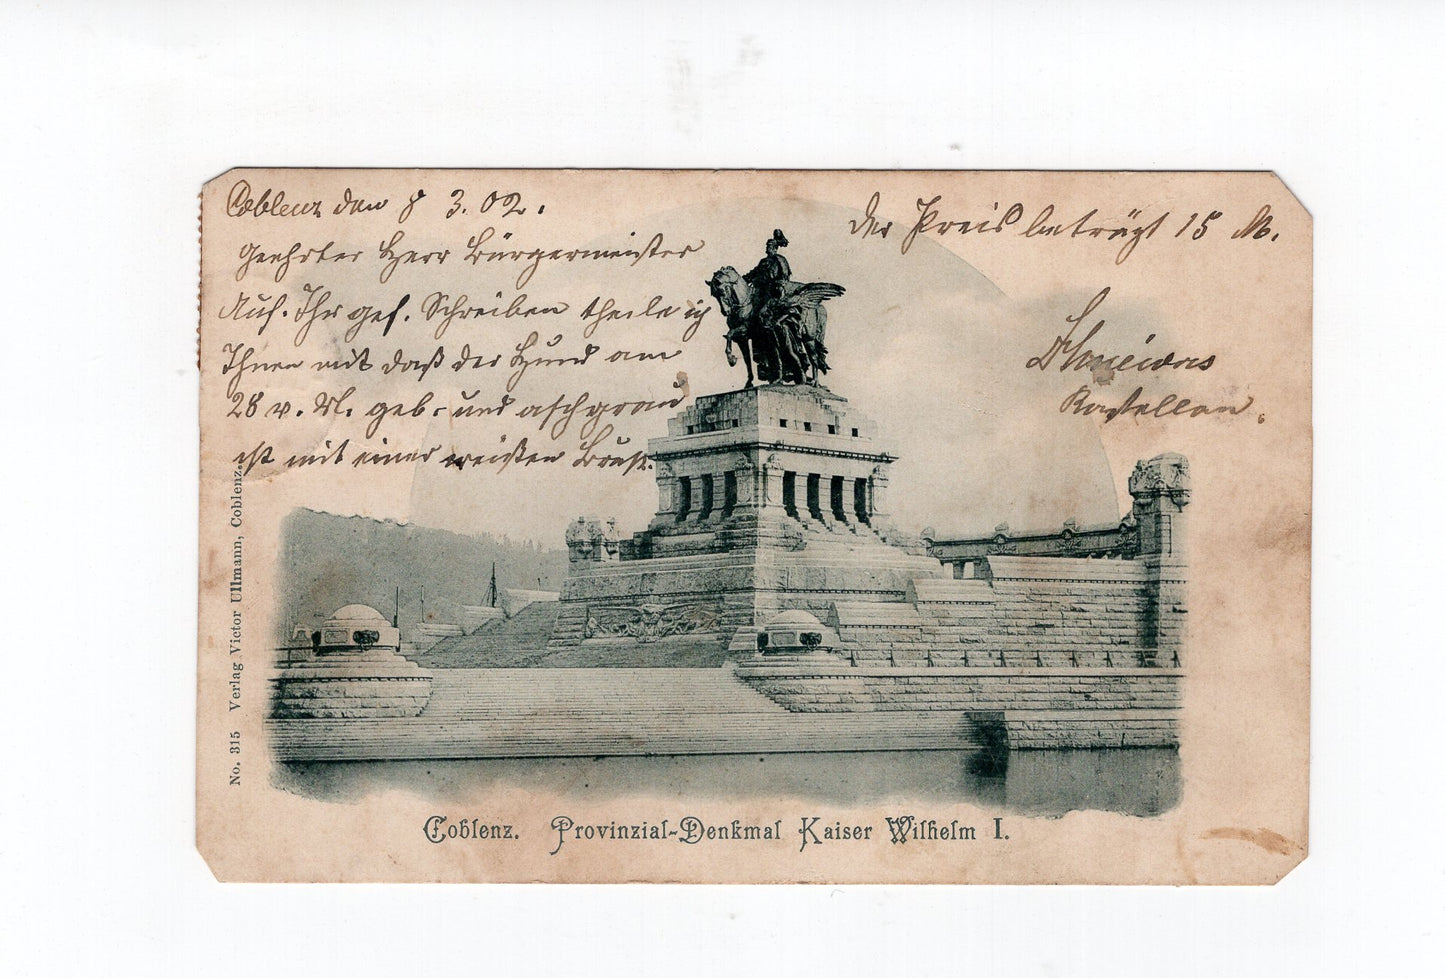 Coblenz den 8 3. 02.
Geehrter Herr Bürgermeister
Auf. Ihr gef. Schreiben theile ich
Ihnen mit daß der Hund am
28 v. M. geb. und aschgrau
ist mit einer weißen Brust.
der Preis beträgt 15 M.
Kastellan.
No. 315 Verlag Victor Ullmann, Coblenz.
Coblenz. Provinzial-Denkmal Kaiser Wilhelm I.